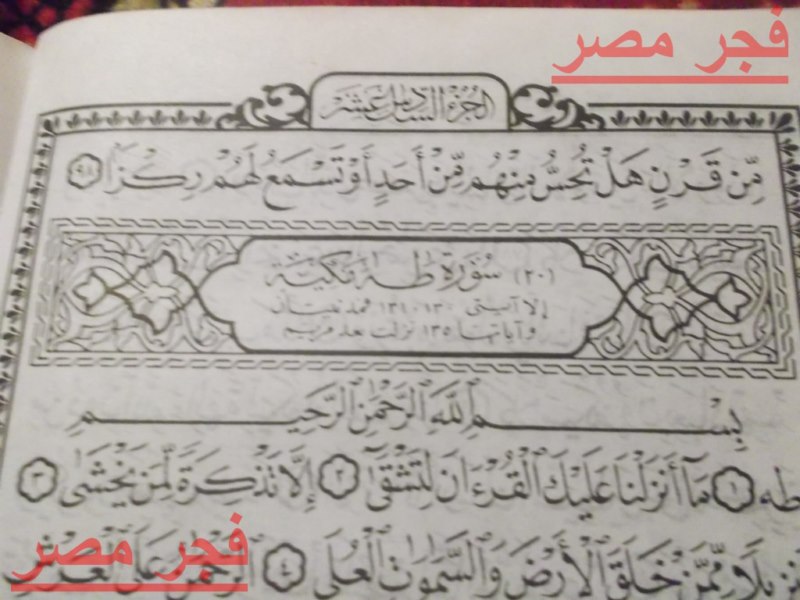 فجر مصر
الجزء السادس عشر
مِّن قَرْنٍ هَلْ تُحِسُّ مِنْهُم مِّنْ أَحَدٍ أَوْ تَسْمَعُ لَهُمْ رِكْزًا ٩٨
(٢٠) سورة طه مكية
إلا آيتي ١٣٠، ١٣١ فمدنيتان
وآياتها ١٣٥ نزلت بعد مريم
بِسْمِ ٱللَّهِ ٱلرَّحْمَٰنِ ٱلرَّحِيمِ
طه ١ مَآ أَنزَلْنَا عَلَيْكَ ٱلْقُرْءَانَ لِتَشْقَىٰٓ ٢ إِلَّا تَذْكِرَةً لِّمَن يَخْشَىٰ ٣
تَنزِيلًا مِّمَّنْ خَلَقَ ٱلْأَرْضَ وَٱلسَّمَٰوَٰتِ ٱلْعُلَى ٤ ٱلرَّحْمَٰنُ عَلَى ٱلْعَرْشِ
فجر مصر